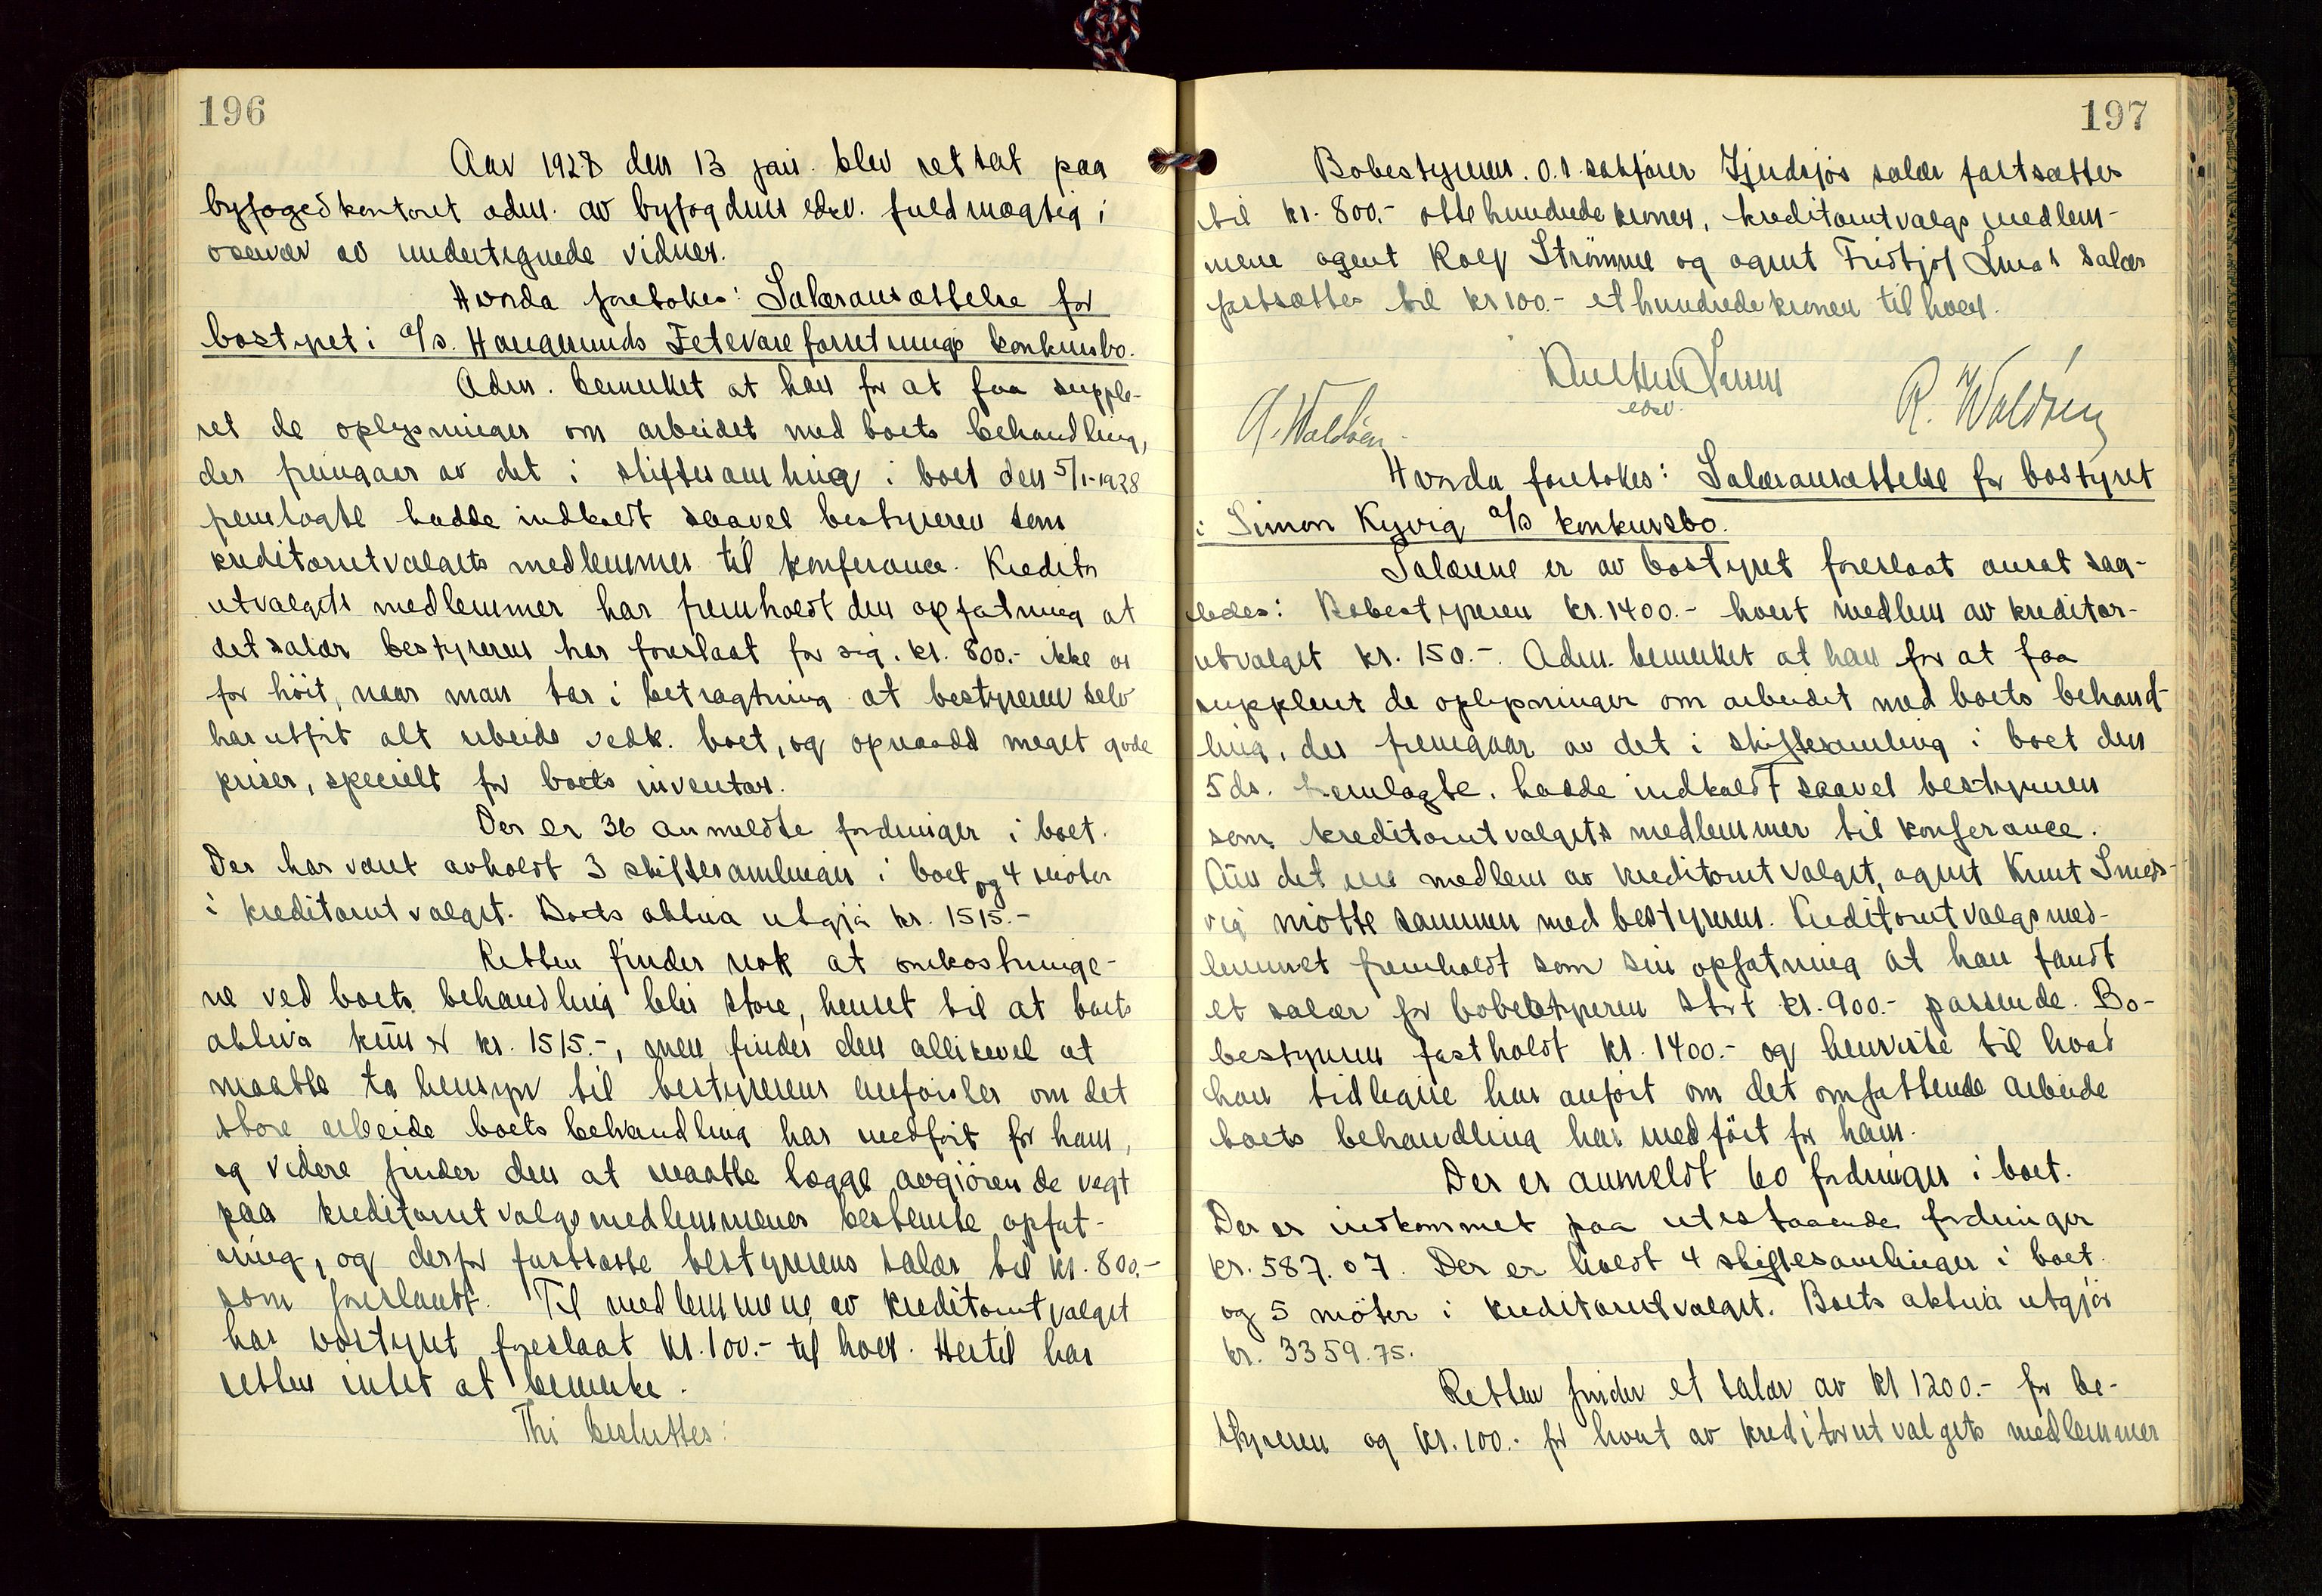 196
Aar 1928 den 13 jan. blev ret sat paa
byfogedkontoret adm. av byfogdens edsv. fuldmægtig i
overvær av undertegnede vidner.
Hvorda foretokes: Salæransættelse for
bostyret i A/s. Haugesunds Fetevareforretnings konkursbo.
Adm. bemerket at han for at faa supple-
ret de oplysninger om arbeidet med boets behandling,
der fremgaar av det i skiftesamling i boet den 5/1-1928
fremlagte hadde indkaldt saavel bestyreren som
kreditorutvalgets medlemmer til konferance. Kreditor
utvalgets medlemmer har fremholdt den opfatning at
det salær bestyreren har foreslaat for sig, kr. 800.- ikke er
for höit, naar man tar i betragtning at bestyreren selv
har utfört alt arbeide vedk. boet, og opnaadd meget gode
priser, specielt for boets inventar.
Der er 36 anmeldte fordringer i boet.
Der har været avholdt 3 skiftesamlinger i boet og 4 möter
i kreditorutvalget. Boets aktiva utgjör kr. 1515.-
Retten finder nok at omkostninge-
ne ved boets behandling blir store, henset til at boets
aktiva kun er kr. 1515.-, men finder den allikevel at
maatte ta hensyn til bestyrerens anförsler om det
store arbeide boets behandling har medfört for ham,
og videre finder den at maatte lægge avgjörende vegt
paa kreditorutvalgsmedlemmenes bestemte opfat-
ning, og derfor fastsætte bestyrerens salær til kr. 800.-
som foreslaat. Til medlemmene av kreditorutvalget
har bostyret foreslaat kr. 100.- til hver. Hertil har
retten intet at bemerke.
Thi besluttes:
197
Bobestyreren, o.r.sakförer Gjerdsjös salær fastsættes
til kr. 800.- otte hundrede kroner, kreditorutvalgsmedlem-
mene agent Rolf Strömme og agent Fridtjof salær
fastsættes til kr 100.- et hundrede kroner til hver.
edsv.
A. Waldsen. R. Waldsen
Hvorda foretokes: Salæransættelse for bostyret
i Simon Kyvig A/s konkursbo.
Salærene er av bostyret foreslaat ansat saa-
ledes: Bobestyreren kr. 1400.- hvert medlem av kreditor-
utvalget kr. 150.-. Adm. bemerket at han for at faa
supplert de oplysninger om arbeidet med boets behand-
ling, der fremgaar av det i skiftesamling i boet den
5 ds. fremlagte, hadde indkaldt saavel bestyreren
som kreditorutvalgets medlemmer til konferance.
Kun det ene medlem av kreditorutvalget, agent Knut Smeds-
vig mötte sammen med bestyreren. Kreditorutvalgsmed-
lemmet fremholdt som sin opfatning at han fandt
et salær for bobestyreren stort kr. 900.- passende. Bo-
bestyreren fastholdt kr. 1400.- og henviste til hvad
han tidligere har anfört om det omfattende arbeide
boets behandling har medfört for ham.
Der er anmeldt 60 fordringer i boet.
Der er indkommet paa utestaaende fordringer
kr. 587.07. Der er holdt 4 skiftesamlinger i boet
og 5 möter i kreditorutvalget. Boets aktiva utgjör
kr. 3359.75.
Retten finder et salær av kr 1200.- for be-
styreren og kr. 100.- for hvert av kreditorutvalgets medlemmer